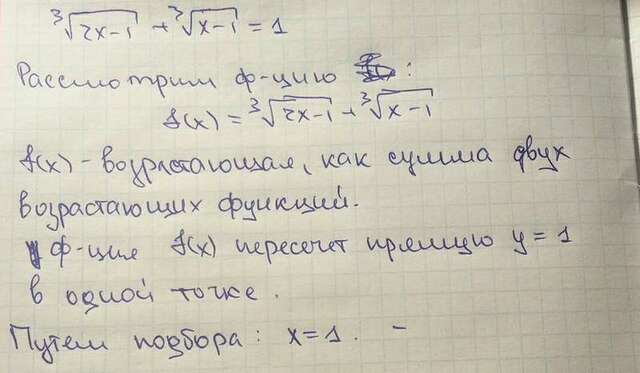 ∛(2x-1) + ∛(x-1) = 1
Рассмотрим ф-цию :
f(x) = ∛(2x-1) + ∛(x-1)
f(x) - возрастающая, как сумма двух
возрастающих функций.
ф-ция f(x) пересечет прямую y = 1
в одной точке.
Путем подбора: x=1. –